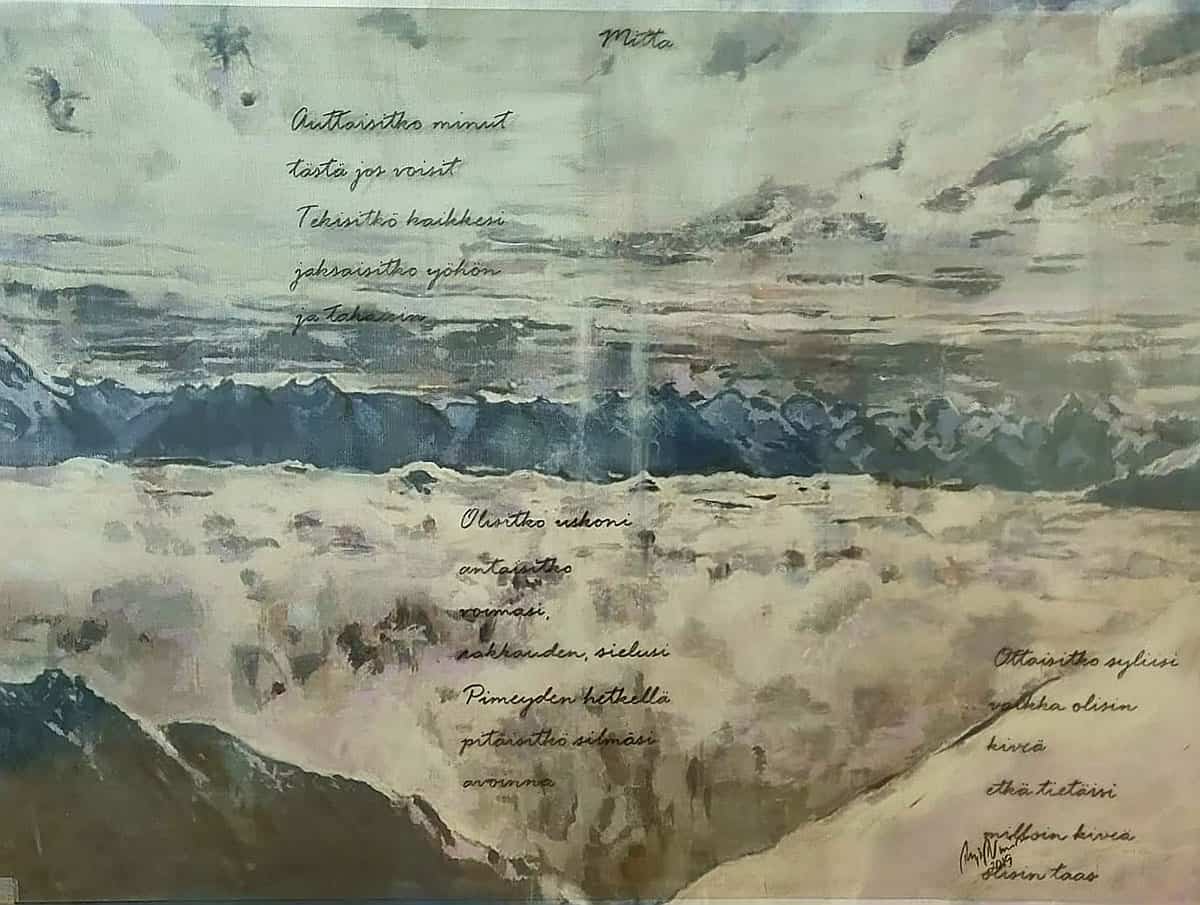 Mitta
Auttaisitko minut
tästä jos voisit
Tekisitkö kaikkesi
jaksaisitko yöhön
ja takaisin
Olisitko uskoni
antaisitko
voimasi,
rakkauden, sielusi
Pimeyden hetkellä
pitäisitkö silmäsi
avoinna
Ottaisitko syliisi
vaikka olisin
kiveä
etkä tietäisi
milloin kiveä
2019
olisin taas